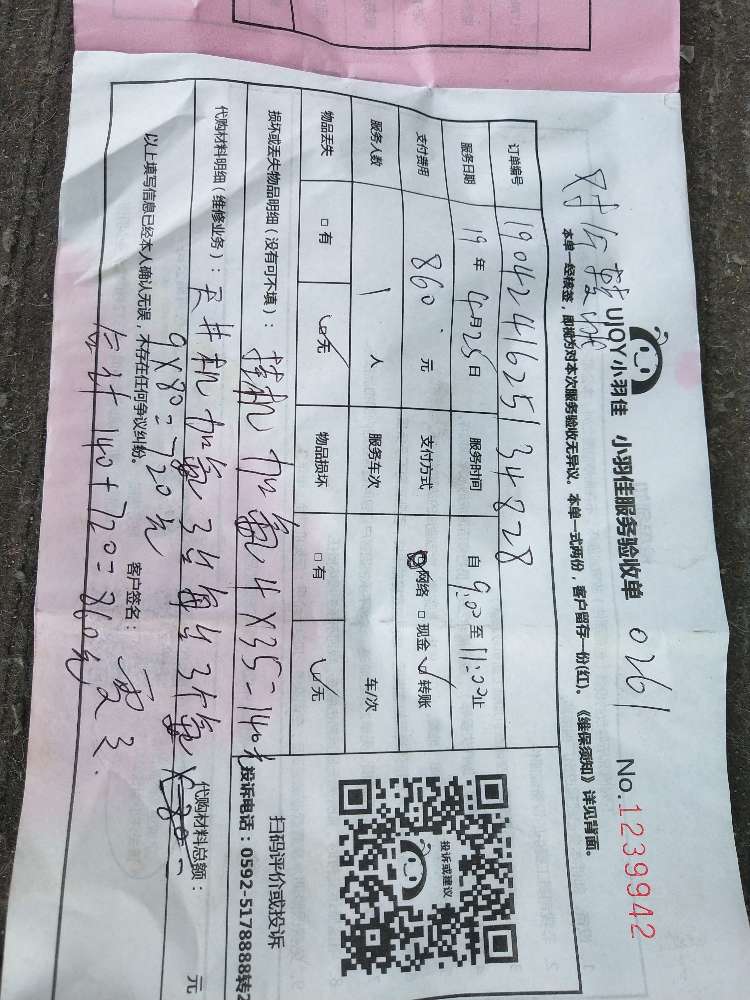 UJOY小羽佳 小羽佳服务验收单 0261 No.1239942
本单一经核签，即视为对本次服务验收无异议。本单一式两份，客户留存一份(红)。《维保须知》详见背面。
订单编号 1904241625134828
服务日期 19年4月25日 服务时间 自9:00至11:00止
支付费用 860元 支付方式 网络 □现金 ✓转账
服务人数 1人 服务车次 车/次
物品丢失 □有 ✓无 物品损坏 □有 ✓无
投诉或建议
扫码评价或投诉
投诉电话：0592-5178888转2
损坏或丢失物品明细（没有可不填）：挂机加氟4×35=140元
代购材料明细（维修业务）：天井机加氟3台每台3次氟×80=
代购材料总额： 元
9×80=720元
以上填写信息已经本人确认无误，不存在任何争议纠纷。 客户签名：
合计140+720=860元